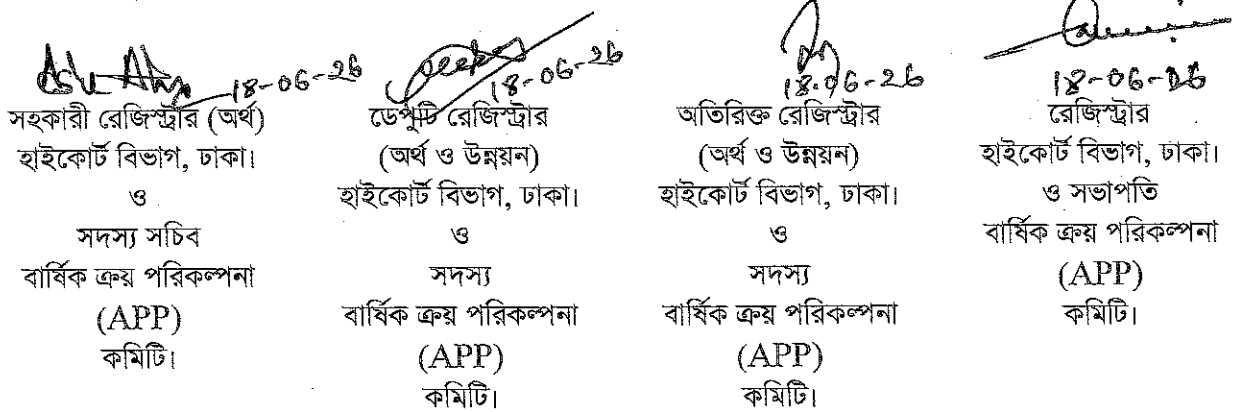 18-06-26
সহকারী রেজিস্ট্রার (অর্থ)
হাইকোর্ট বিভাগ, ঢাকা।
ও
সদস্য সচিব
বার্ষিক ক্রয় পরিকল্পনা
(APP)
কমিটি।
18-06-26
ডেপুটি রেজিস্ট্রার
(অর্থ ও উন্নয়ন)
হাইকোর্ট বিভাগ, ঢাকা।
ও
সদস্য
বার্ষিক ক্রয় পরিকল্পনা
(APP)
কমিটি।
18.06-26
অতিরিক্ত রেজিস্ট্রার
(অর্থ ও উন্নয়ন)
হাইকোর্ট বিভাগ, ঢাকা।
ও
সদস্য
বার্ষিক ক্রয় পরিকল্পনা
(APP)
কমিটি।
18-06-26
রেজিস্ট্রার
হাইকোর্ট বিভাগ, ঢাকা।
ও সভাপতি
বার্ষিক ক্রয় পরিকল্পনা
(APP)
কমিটি।